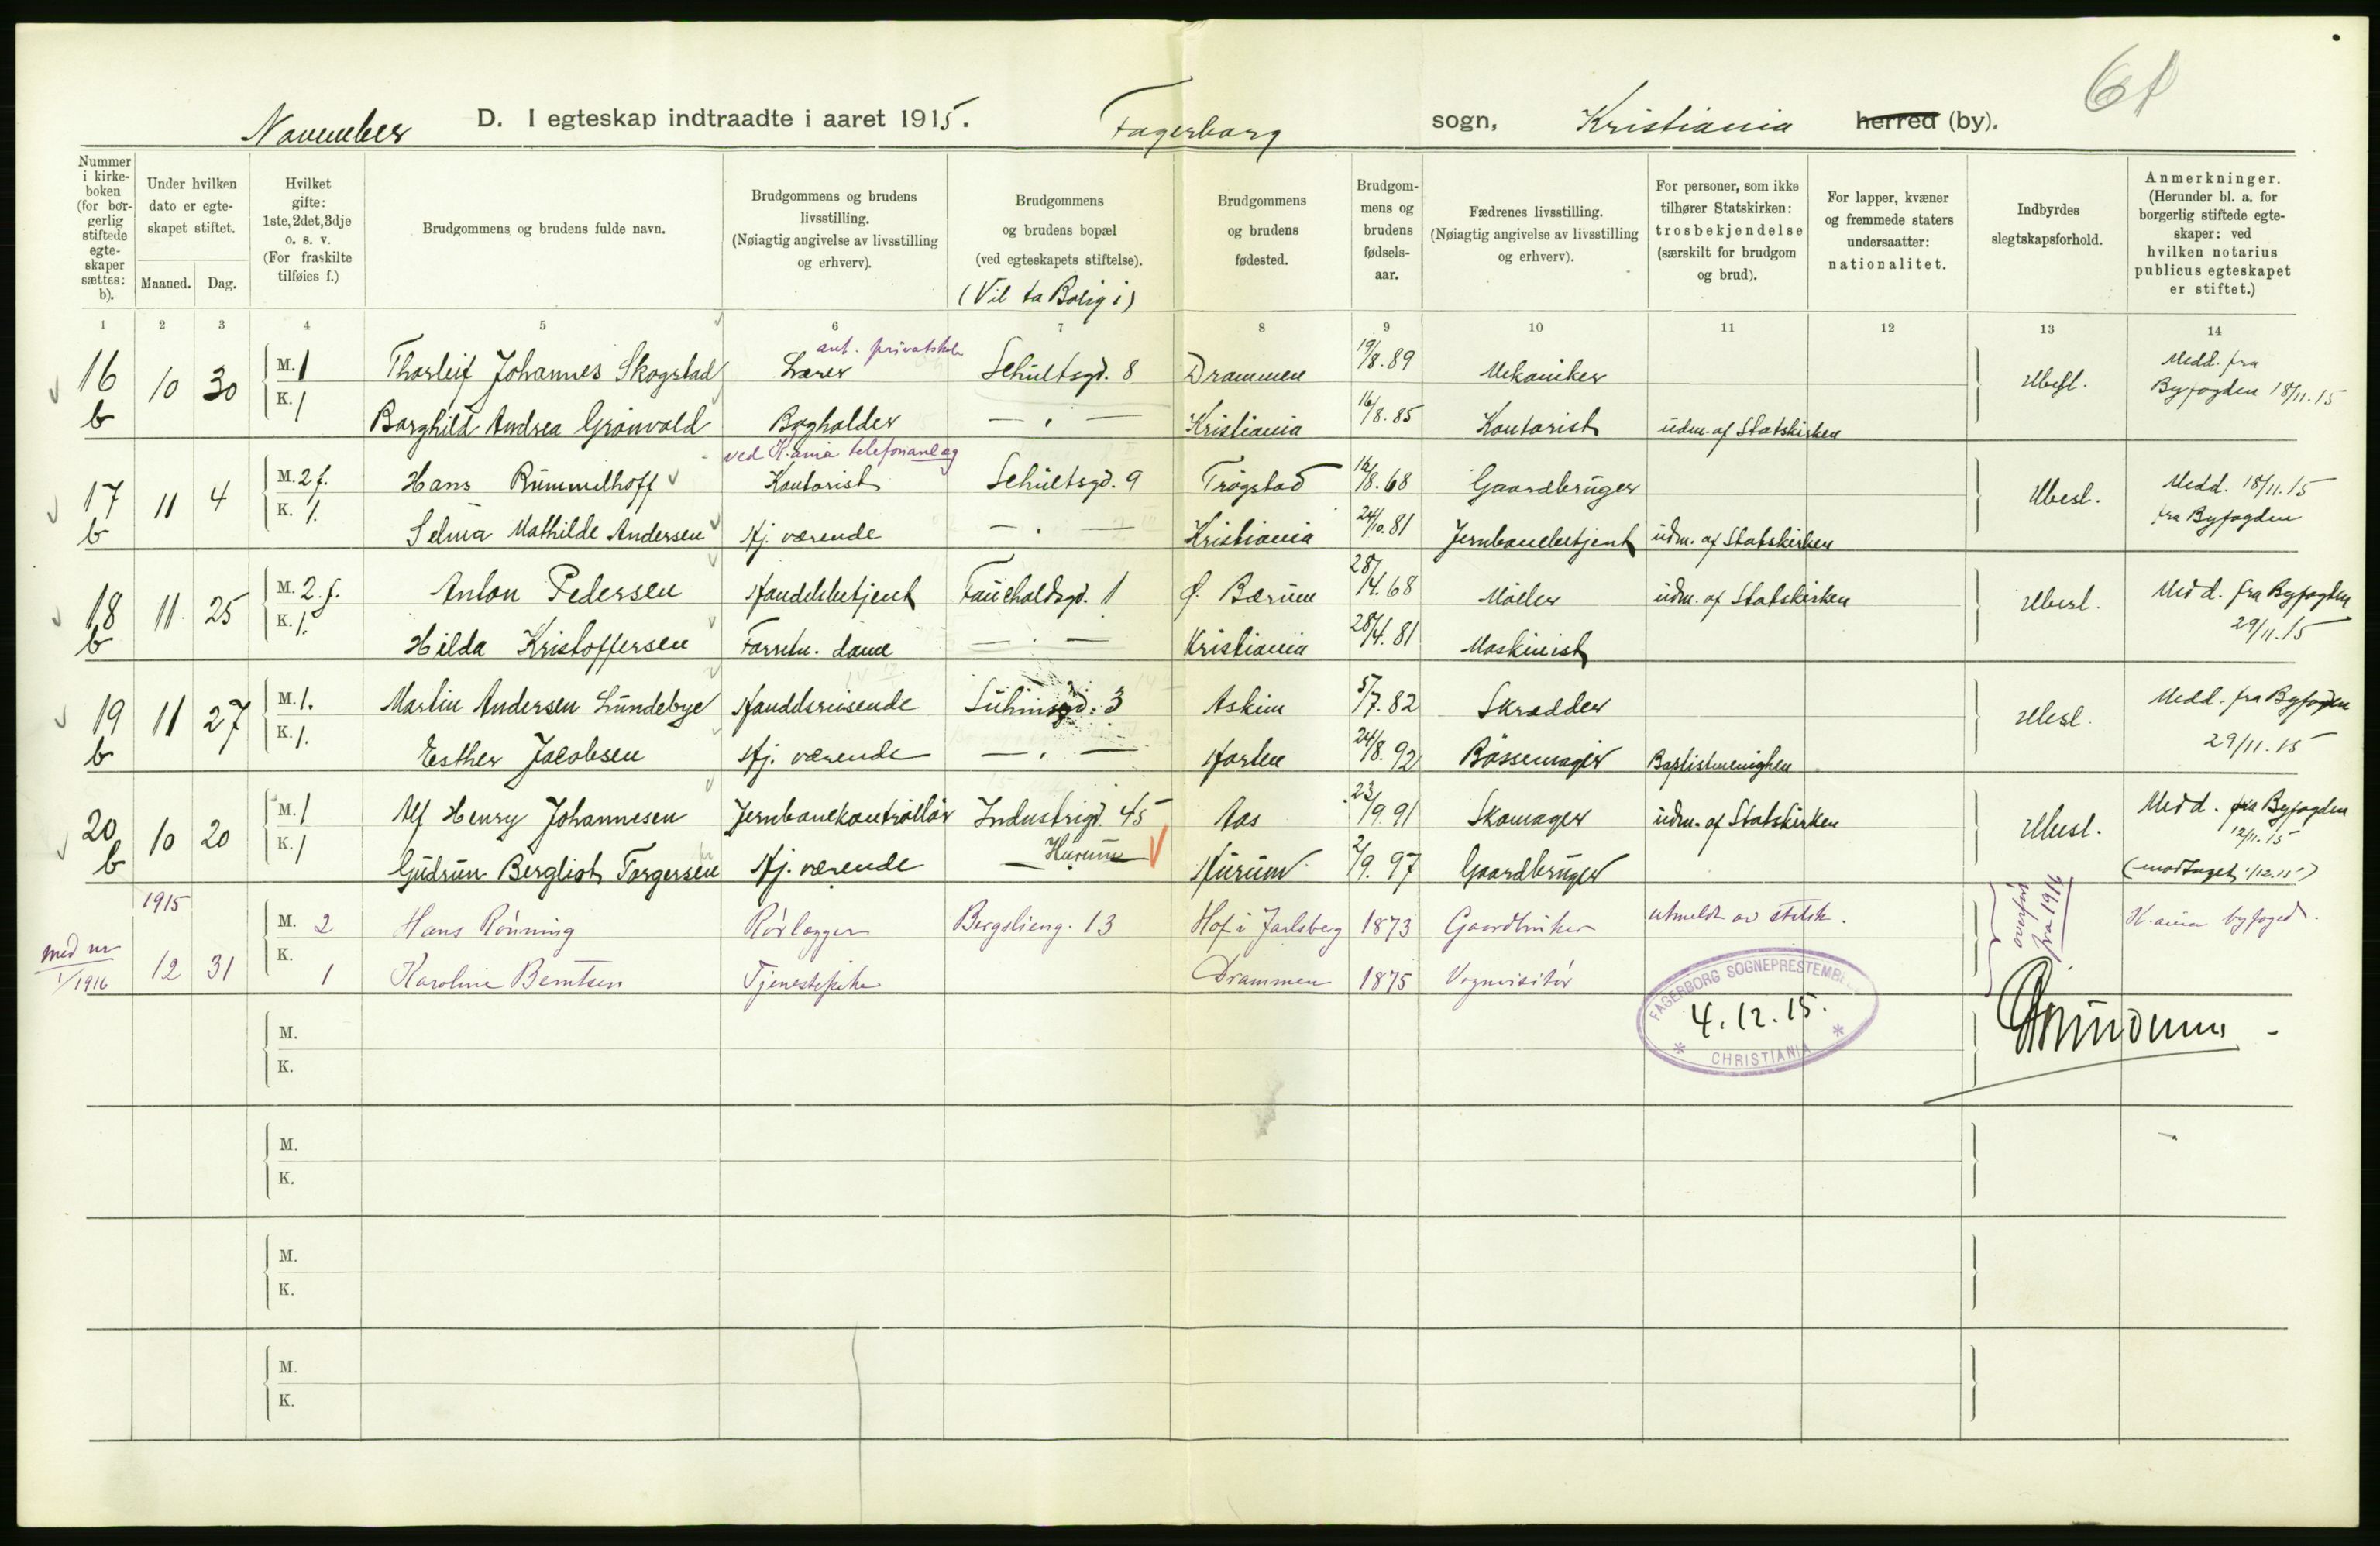 61
November D. I egteskap indtraadte i aaret 1915. Fagerborg sogn, Kristiania herred (by).
Nummer i kirke-boken (for bor-gerlig stiftede egte-skaper sættes: b).
Under hvilken dato er egte-skapet stiftet.
Maaned. Dag.
Hvilket gifte: 1ste, 2det, 3dje o. s. v. (For fraskilte tilføies f.)
Brudgommens og brudens fulde navn.
Brudgommens og brudens livsstilling. (Nøiagtig angivelse av livsstilling og erhverv).
Brudgommens og brudens bopæl (ved egteskapets stiftelse).
(Vil ta Bolig i)
Brudgommens og brudens fødested.
Brudgom-mens og brudens fødsels-aar.
Fædrenes livsstilling. (Nøiagtig angivelse av livsstilling og erhverv).
For personer, som ikke tilhører Statskirken: trosbekjendelse (særskilt for brudgom og brud).
For lapper, kvæner og fremmede staters undersaatter: nationalitet.
Indbyrdes slegtskapsforhold.
Anmerkninger. (Herunder bl. a. for borgerlig stiftede egte-skaper: ved hvilken notarius publicus egteskapet er stiftet.)
1 2 3 4 5 6 7 8 9 10 11 12 13 14
ant. privatskole
16 b 10 30 M. 1 Thorleif Johannes Skogstad Lærer Schultsgd. 8 Drammen 19/8.89 Mekaniker Ubesl. Medd. fra Byfogden 18/11.15
K. 1 Borghild Andrea Grönvold Bogholder — " — Kristiania 16/8.85 Kontorist udm. af Statskirken
ved K.ania telefonanlæg
17 b 11 4 M. 2 f. Hans Rummelhoff Kontorist Schultsgd. 9 Trøgstad 16/8.68 Gaardbruger Ubesl. Medd. 18/11.15 fra Byfogden
K. 1. Selma Mathilde Andersen Hj. værende — " — Kristiania 24/10.81 Jernbanebetjent udm. af Statskirken
18 b 11. 25 M. 2. f. Anton Pedersen Handelsbetjent Faucholdsgd. 1 Ø. Bærum 28/4.68 Møller udm. af Statskirken Ubesl. Medd. fra Byfogden 29/11.15
K. 1. Hilda Kristoffersen Forretn. dame — " — Kristiania 28/4.81 Maskinist
19 b 11 27 M. 1. Martin Andersen Lundebye Handelsreisende Suhmsgd. 3 Askim 5/7.82 Skrædder Ubesl. Medd. fra Byfogden 29/11.15
K. 1. Esther Jacobsen Hj. værende — " — Horten 24/8.92 Bössemager Baptistmenigheden
20 b 10 20 M. 1 Alf Henry Johannesen Jernbanekontrollör Industrigd. 45 Aas 23/9.91 Skomager udm. af Statskirken Ubesl. Medd. fra Byfogden 12/11.15
K. 1 Gudrun Bergliot Torgersen Hj. værende Hurum Hurum 2/9.97 Gaardbruger (modtaget 1/12.15)
1915
med nr 1/1916 12 31 M. 2 Hans Rönning Rörlægger Bergslieng. 13 Hof i Jarlsberg 1873 Gaardbruker utmeldt av statsk. overført fra 1916 K.ania byfoged.
K. 1 Karoline Berntsen Tjenestepike Drammen 1875 Vognvisitör
FAGERBORG SOGNEPRESTEMBEDE
4.12.15.
* CHRISTIANIA *
M.
K.
M.
K.
M.
K.
M.
K.